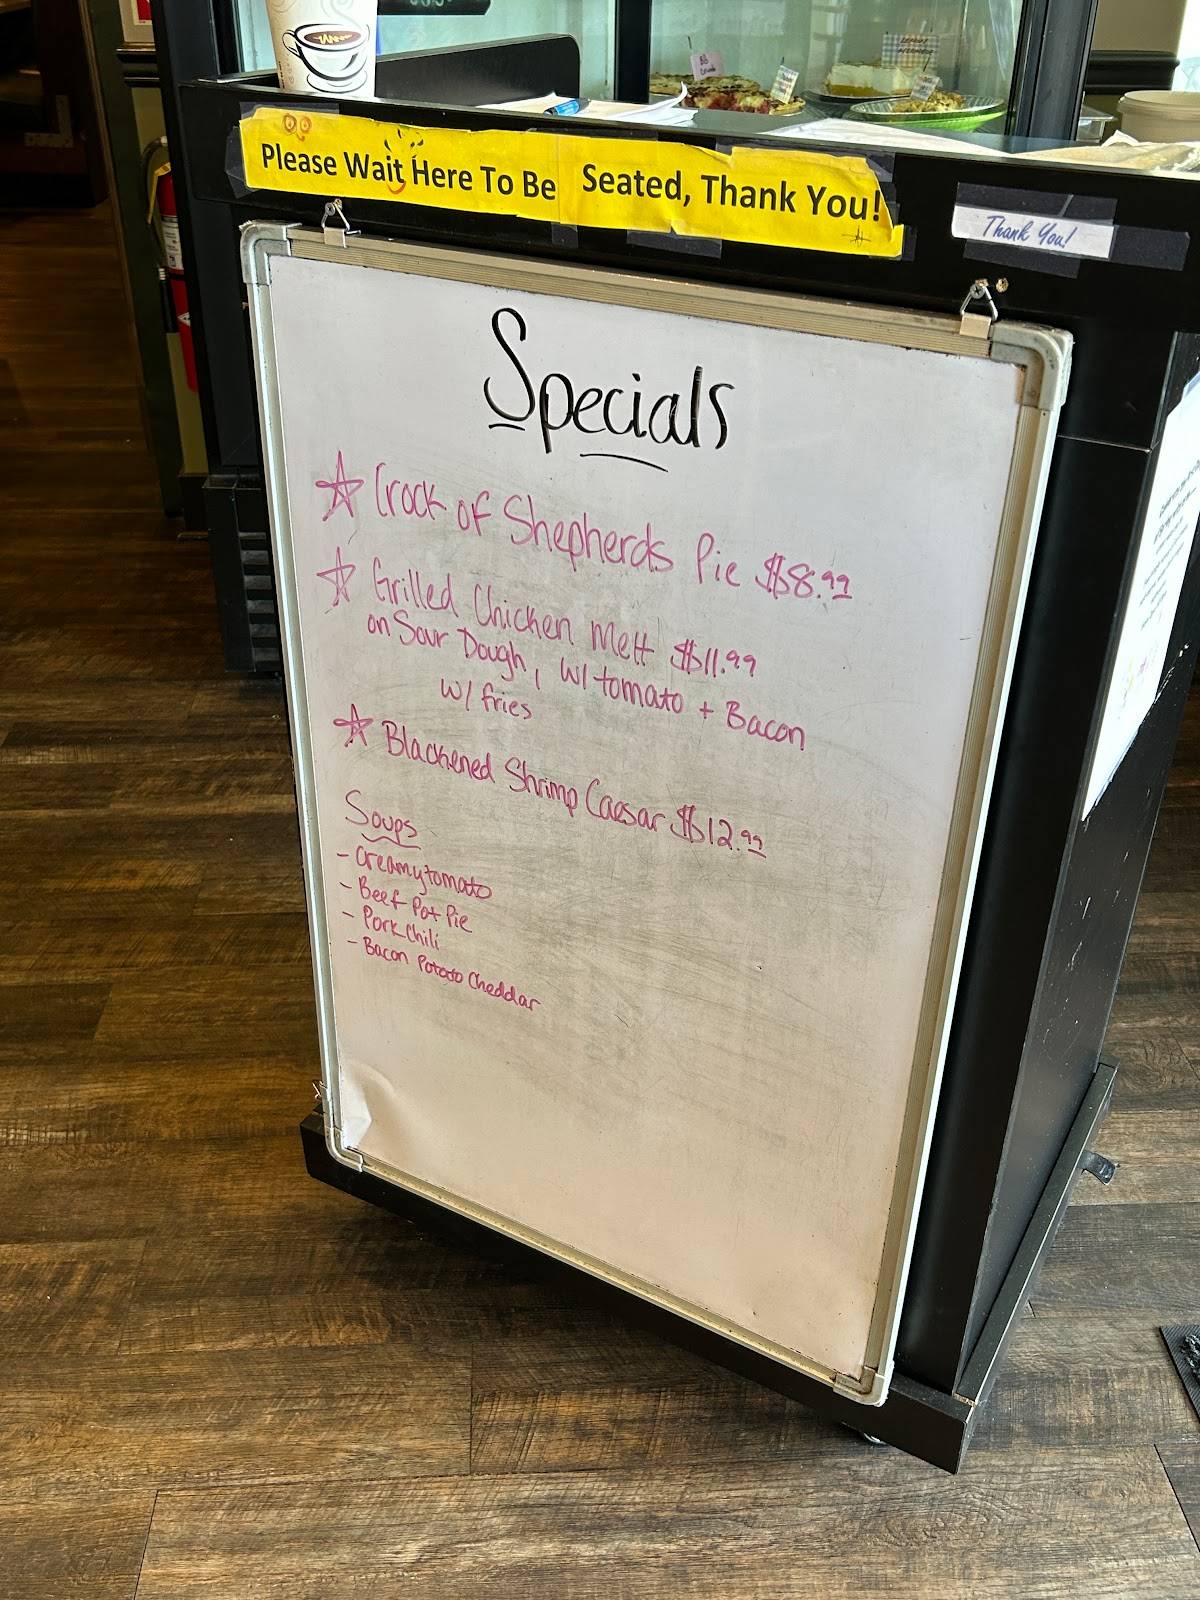 Please Wait Here To Be Seated, Thank You!
Thank You!
Specials
Crock of Shepherds Pie $8.99
Grilled Chicken Melt $11.99
on Sour Dough, w/ tomato + Bacon
w/ fries
Blackened Shrimp Caesar $12.99
Soups
- Creamy tomato
- Beef Pot Pie
- Pork Chili
- Bacon Potato Cheddar